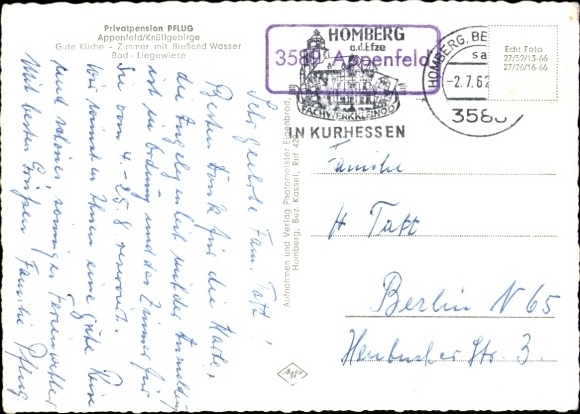 Privatpension PFLUG
Appenfeld/Knüllgebirge
Gute Küche - Zimmer mit fließend Wasser
Bad - Liegewiese
HOMBERG
a.d.Efze
FACHWERKKLEINOD
IN KURHESSEN
3589 Appenfeld
HOMBERG, BE
-2.7.6
358
Echt Foto
27/52/13-66
27/26/16-66
Aufnahmen und Verlag Photomeister Eigenbrod,
Homberg, Bez. Kassel, Ruf 42
Sehr geehrte Fam. Tatt!
Besten Dank für die Karte,
die Angelegenheit mit der Anmeldung
ist in Ordnung und das Zimmer für
Sie vom 4. - 25.8. reserviert.
Wir wünschen Ihnen eine gute Reise
und schönes sonniges Ferienwetter
Mit besten Grüßen Familie Pflug
Familie
H Tatt
Berlin N 65
Str. 3.